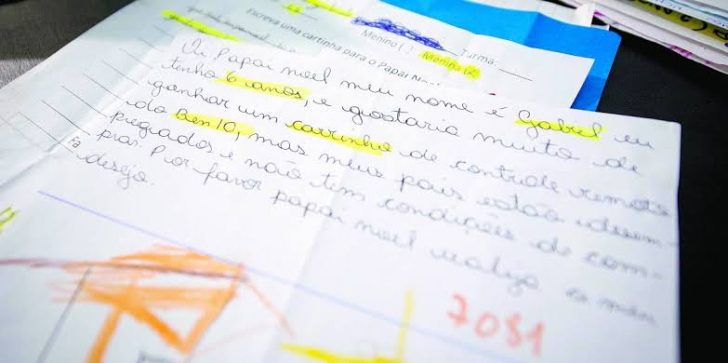 Escreva uma cartinha para o Papai
Menino ( ) Menina
Turma:
Oi Papai noel meu nome é Gabriel eu
tenho 6 anos, e gostaria muito de
ganhar um carrinho de controle remoto
do Ben 10, mas meus pais estão desem-
pregados e não tem condições de com-
prar. Por favor papai noel realize es meu
desejo.
7081